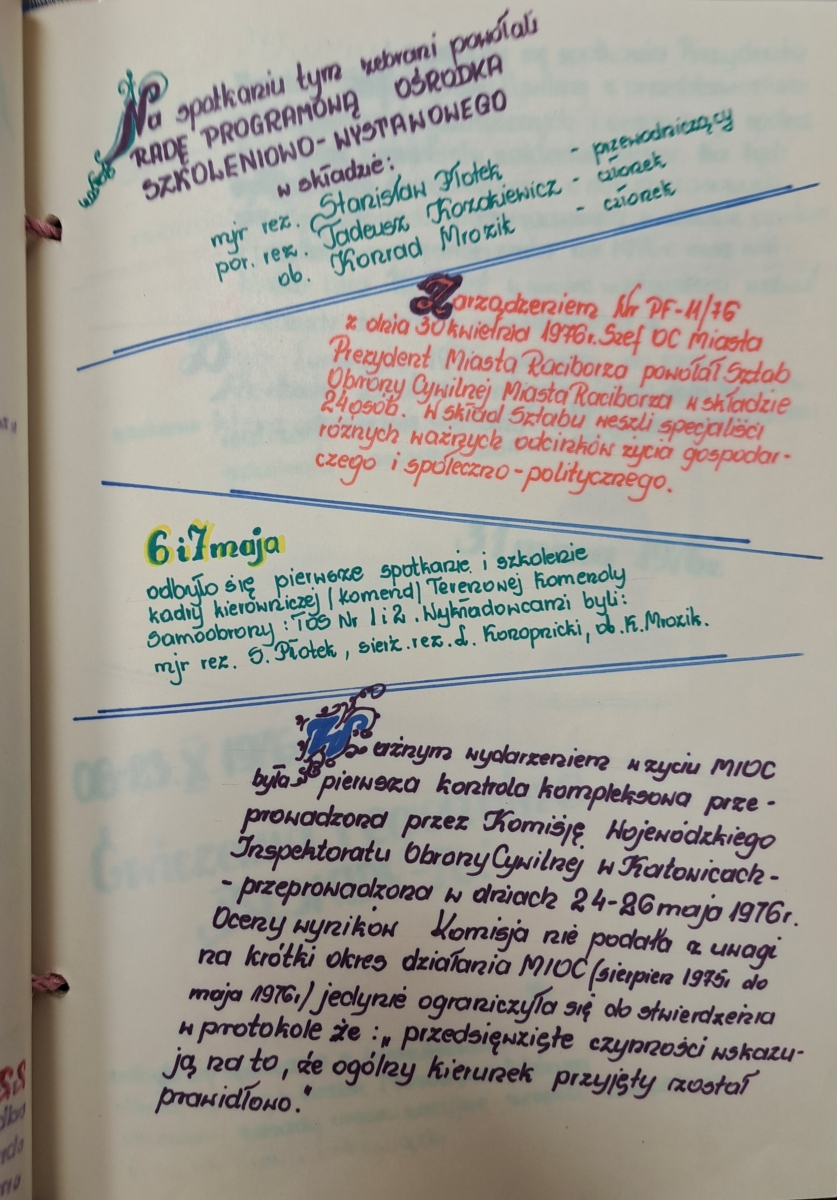 Na spotkaniu tym zebrani powołali
RADĘ PROGRAMOWĄ OŚRODKA
SZKOLENIOWO-WYSTAWOWEGO
w składzie:
mjr rez. Stanisław Płotek - przewodniczący
por. rez. Tadeusz Kozakiewicz - członek
ob. Konrad Mrozik - członek
Zarządzeniem Nr PF-11/76
z dnia 30 kwietnia 1976r. Szef OC Miasta
Prezydent Miasta Raciborza powołał Sztab
Obrony Cywilnej Miasta Raciborza w składzie
24 osób. W skład Sztabu weszli specjaliści
różnych ważnych odcinków życia gospodar-
czego i społeczno-politycznego.
6 i 7 maja
odbyło się pierwsze spotkanie i szkolenie
kadry kierowniczej (komend) Terenowej Komendy
Samoobrony: TOS Nr 1 i 2. Wykładowcami byli:
mjr rez. S. Płotek, sierż. rez. L. Konopnicki, ob. K. Mrozik.
Ważnym wydarzeniem w życiu MIOC
była pierwsza kontrola kompleksowa prze-
prowadzona przez Komisję Wojewódzkiego
Inspektoratu Obrony Cywilnej w Katowicach-
- przeprowadzona w dniach 24-26 maja 1976r.
Oceny wyników Komisja nie podała z uwagi
na krótki okres działania MIOC (sierpień 1975r do
maja 1976r) jedynie ograniczyła się do stwierdzenia
w protokole że: „przedsięwzięte czynności wskazu-
ją na to, że ogólny kierunek przyjęty został
prawidłowo."